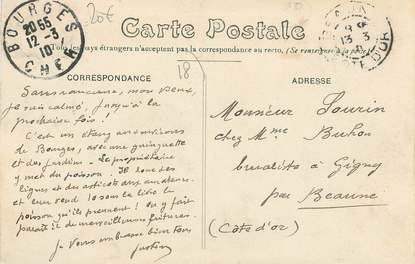 BOURGES
20 55
12-3
10
CHER
20€
18
Carte Postale
Tous les pays étrangers n'acceptent pas la correspondance au recto, (Se renseigner à la poste)
CORRESPONDANCE
ADRESSE
Sans rancune, mon vieux,
je suis calmé, jusqu'à la
prochaine fois !
C'est un étang aux environs
de Bourges, avec une guinguette
et des jardins. Le propriétaire
y met du poisson. Il loue des
lignes et des asticots aux amateurs
et leur vend la livre le
poisson qu'ils prennent ! On y fait
paraît-il de merveilleuses fritures.
Je vous embrasse bien tous
Monsieur Sourin
chez Mme Buhon
buraliste à Gigny
par Beaune
(Côte d'or)
13-3
CÔTE D'OR